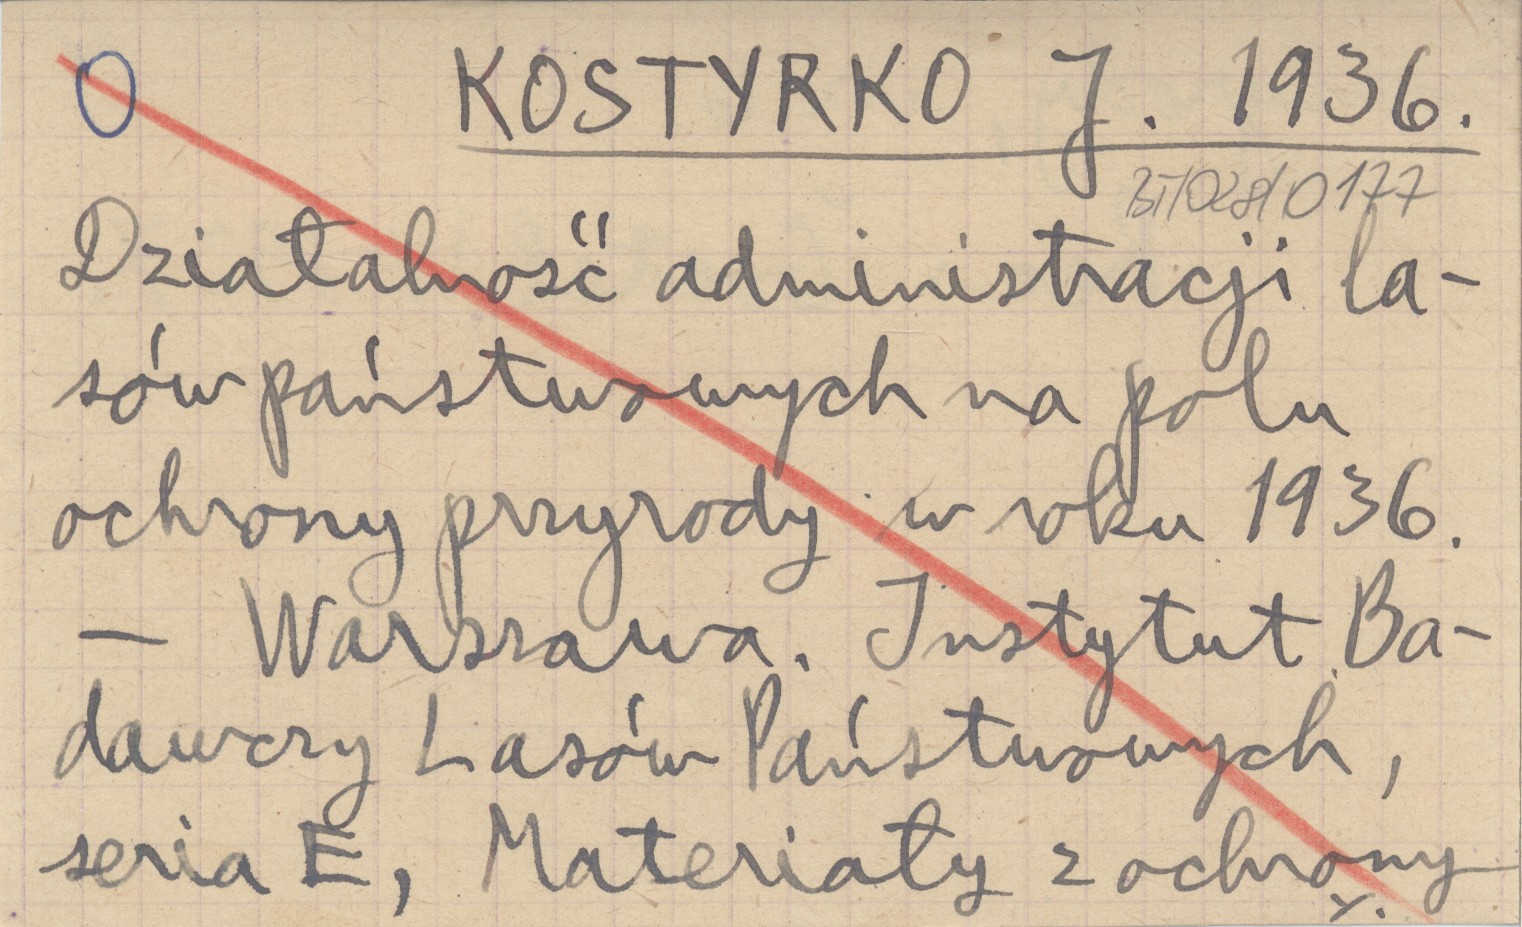 O KOSTYRKO J. 1936.
BT/028/0177
Działalność administracji la-
sów państwowych na polu
ochrony przyrody w roku 1936.
— Warszawa. Instytut Ba-
dawczy Lasów Państwowych,
seria E, Materiały z ochrony